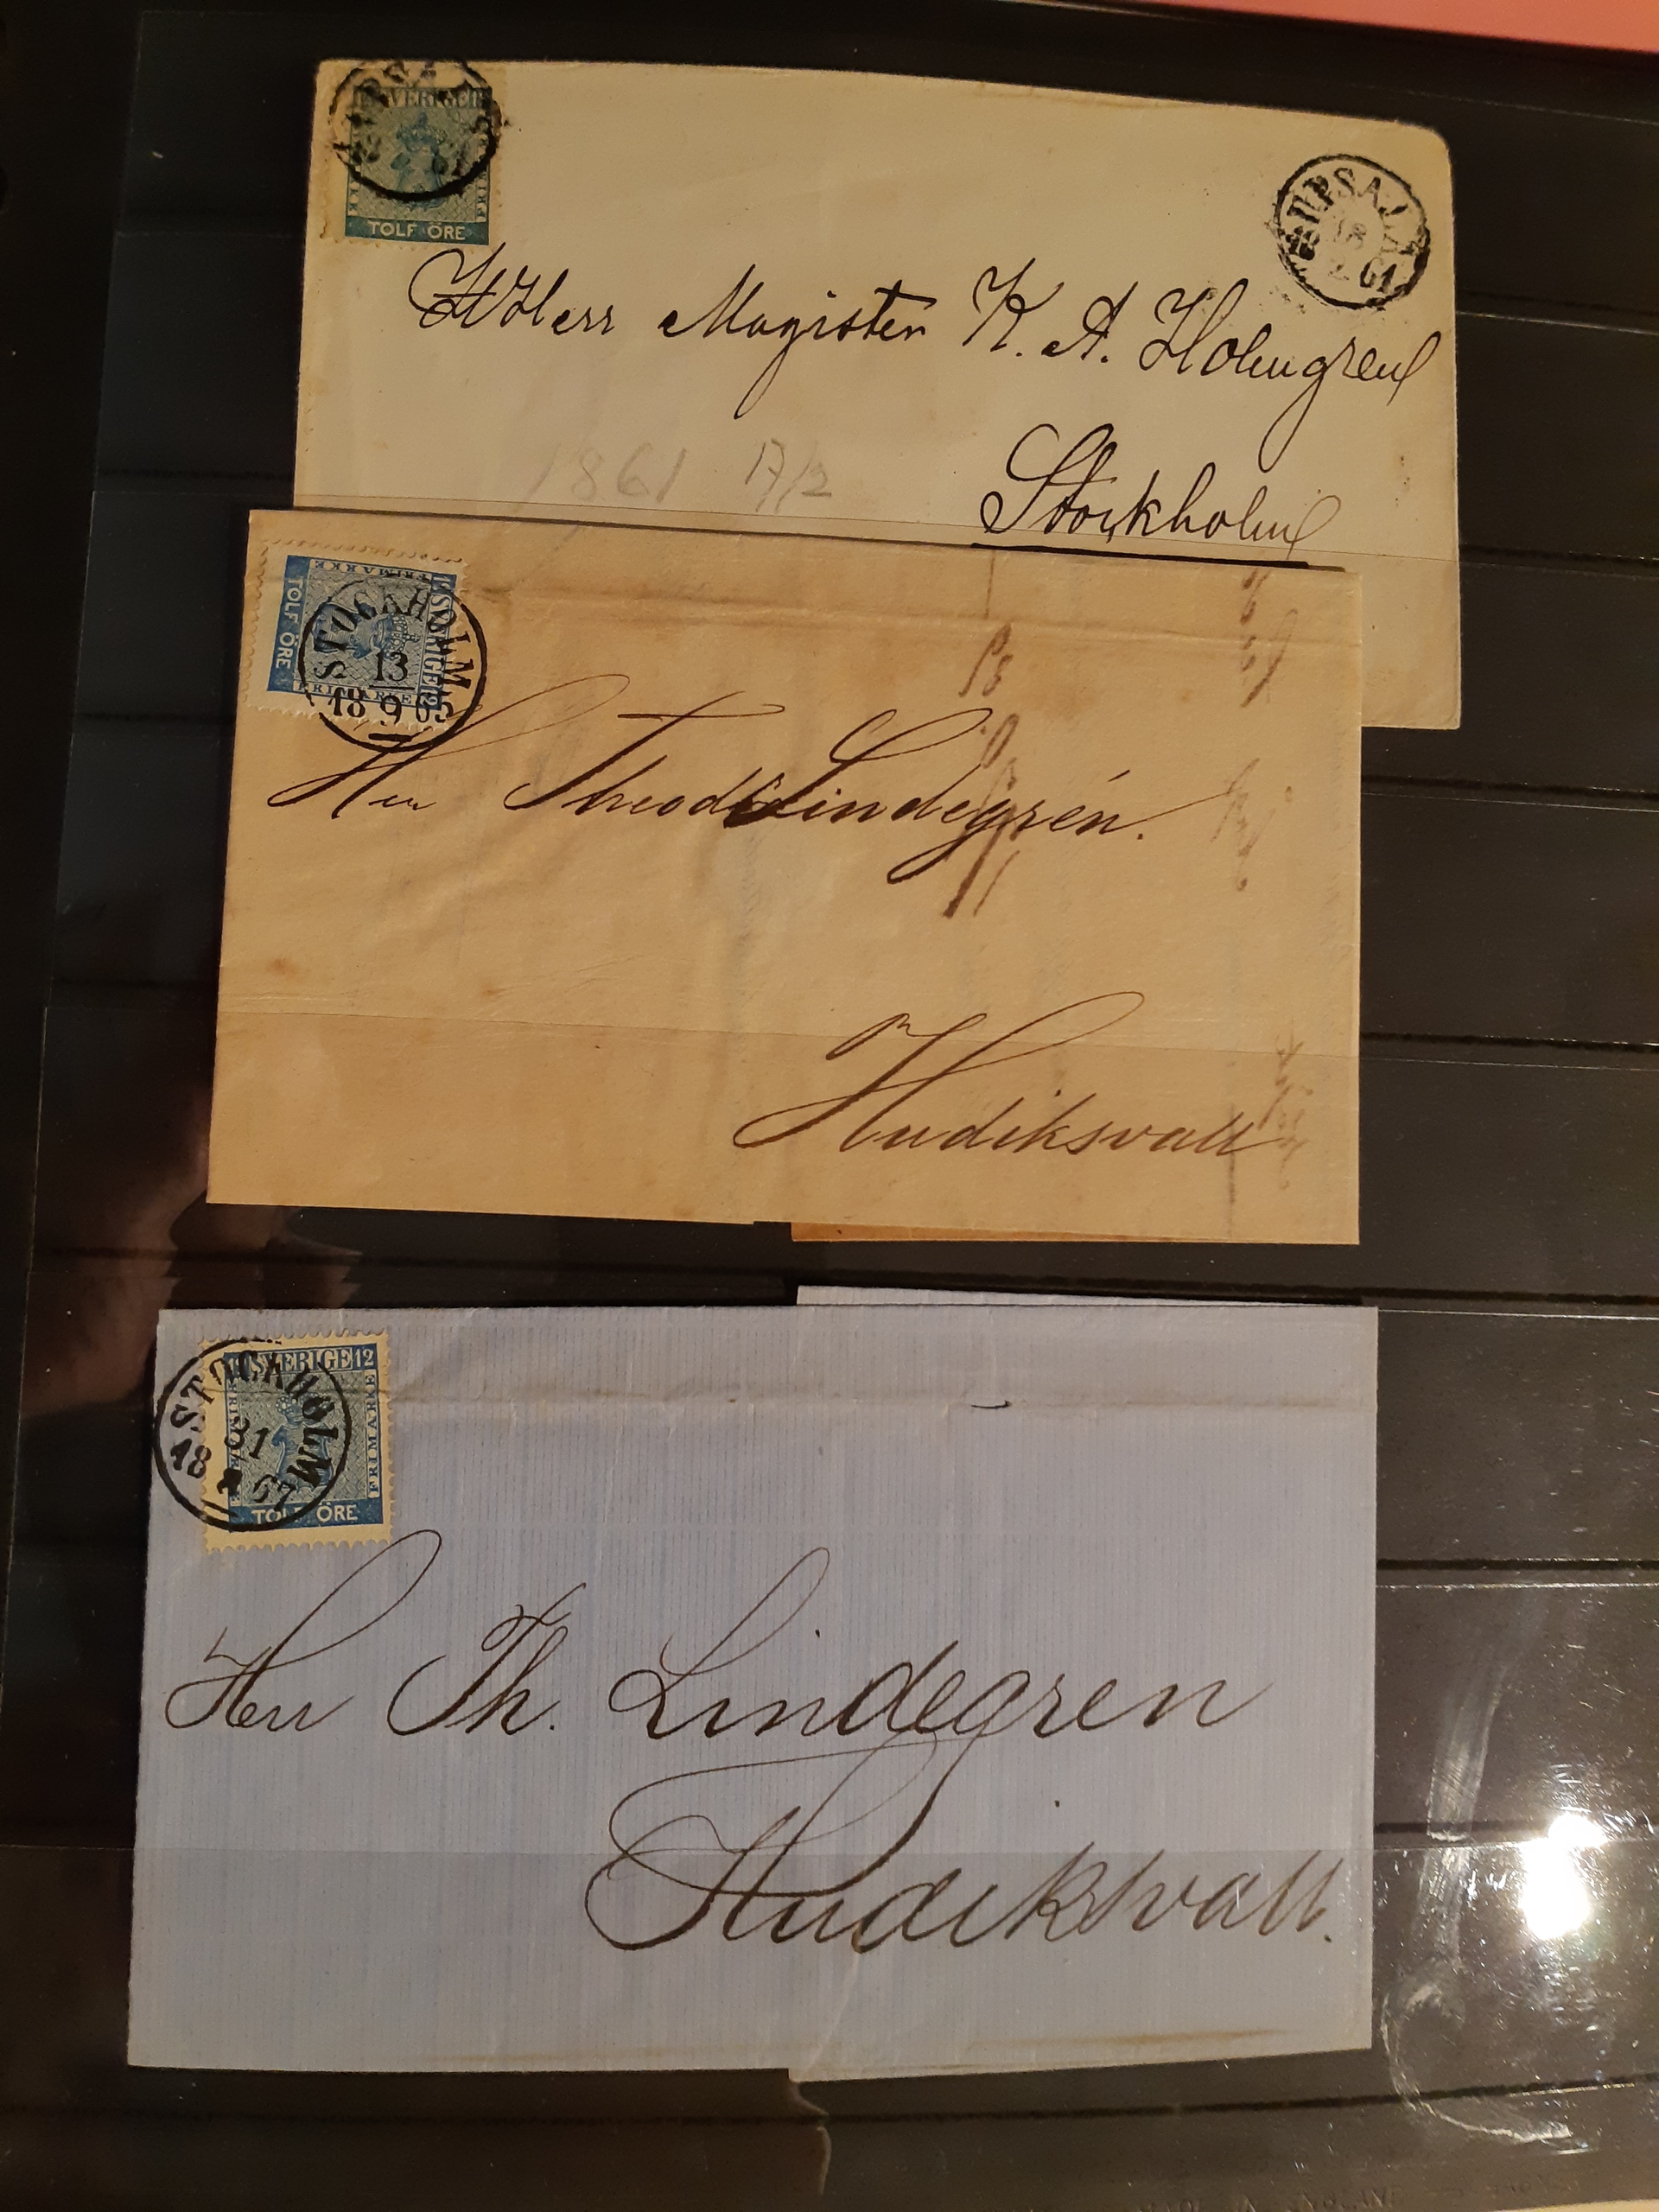 SVERIGE
TOLF ÖRE
UPSALA
18
2
18 61
HHerr Magister K. A. Holmgren
Stockholm
1861 17/2
SVERIGE 12
FRIMARKE
FRIMARKE
TOLF ÖRE
STOCKHOLM
13
18 9 65
Herr Theod Lindegrén.
Hudiksvall
SVERIGE 12
FRIMARKE
FRIMARKE
TOLF ÖRE
STOCKHOLM
31
18 67
Herr Th. Lindegren
Hudiksvall.